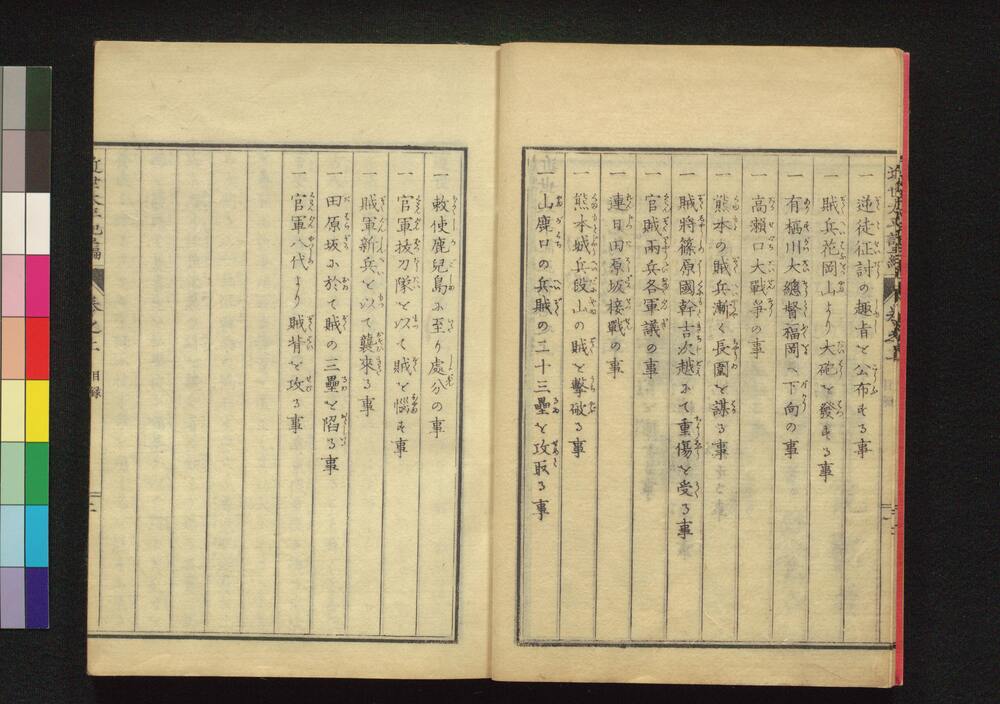 一 逆徒征討の趣旨を公布する事
一 賊兵花岡山より大砲を發する事
一 有栖川大總督福岡へ下向の事
一 高瀬口大戰爭の事
一 熊本の賊兵漸く長圍を謀る事
一 賊將篠原國幹吉次越にて重傷を受る事
一 官賊兩兵各軍議の事
一 連日田原坂接戰の事
一 熊本城兵段山の賊を擊破る事
一 山鹿口の兵賊の二十三壘を攻取る事
一 敕使鹿兒島に至り處分の事
一 官軍拔刀隊を以て賊を惱す事
一 賊軍新兵を以て襲來る事
一 田原坂に於て賊の三壘を陷る事
一 官軍八代より賊背を攻る事
卷之二 目録